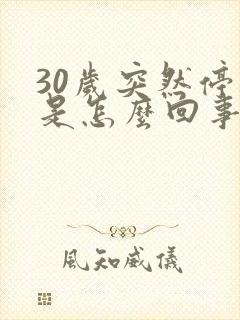 30歲突然停
是怎麼回事
風知威儀